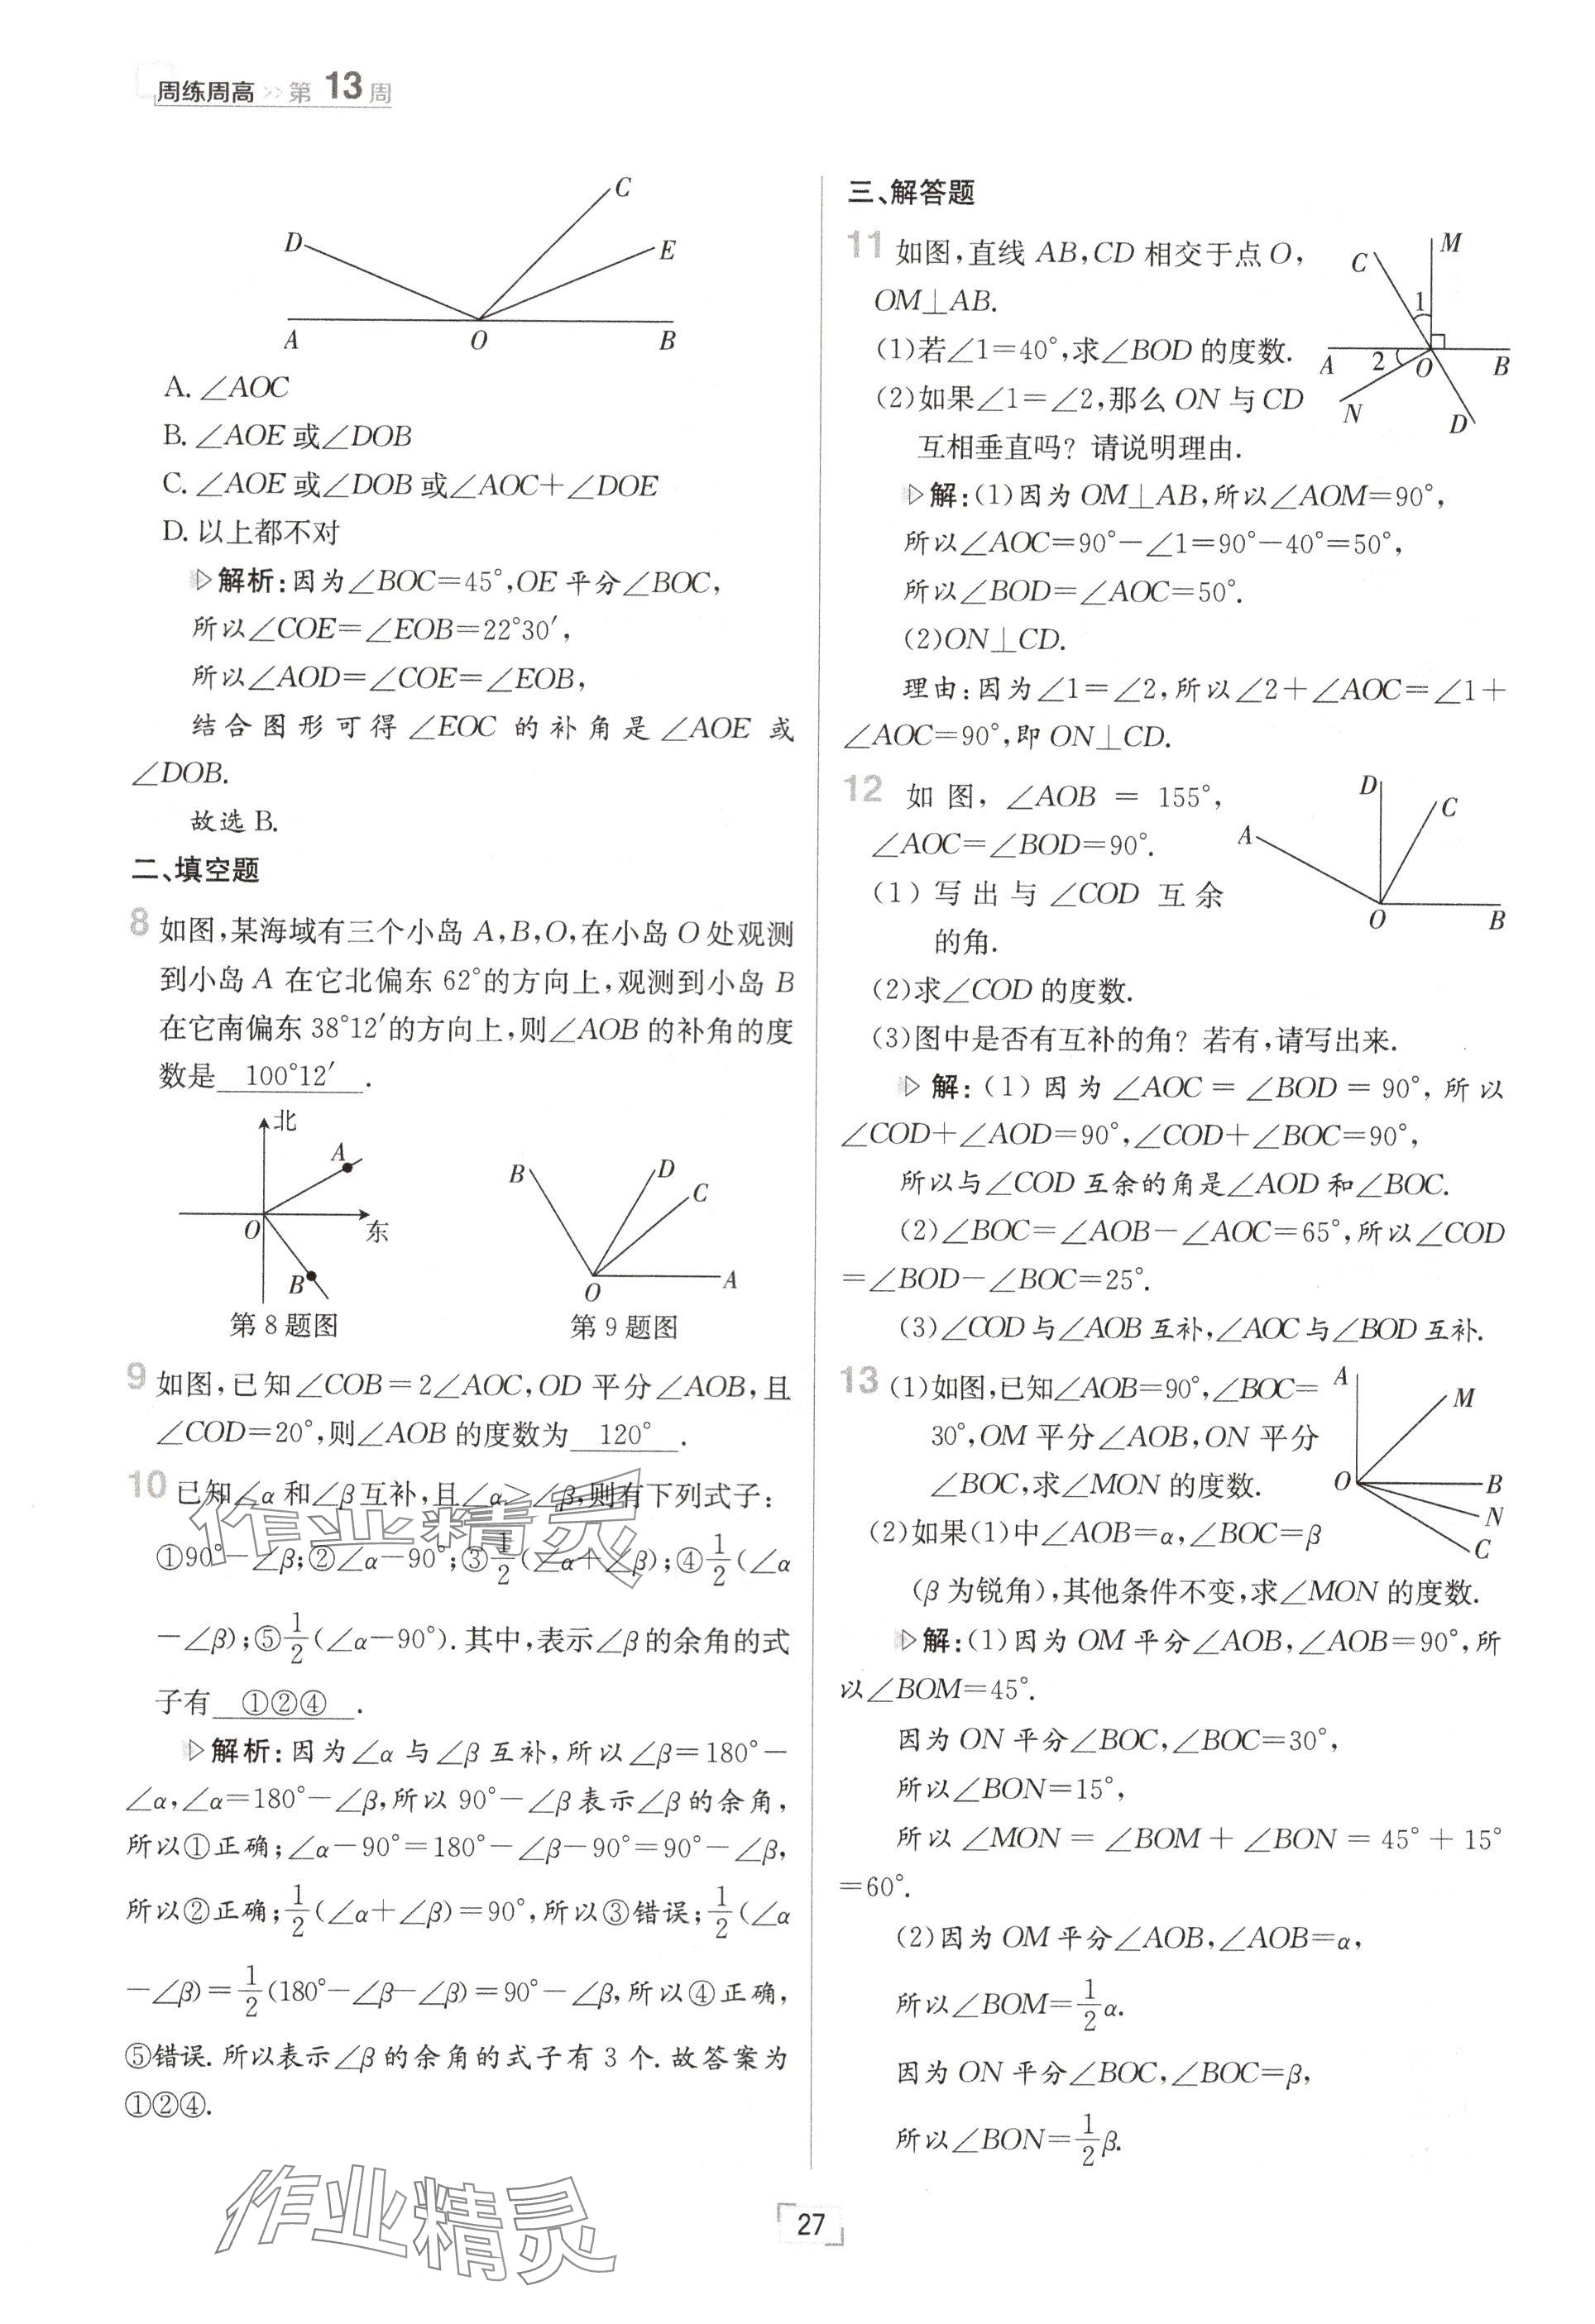 周练周高 >> 第 13 周
C
D
E
A
O
B
A. ∠AOC
B. ∠AOE 或∠DOB
C. ∠AOE 或∠DOB 或∠AOC+∠DOE
D. 以上都不对
▷解析:因为∠BOC=45°,OE 平分∠BOC,
所以∠COE=∠EOB=22°30′,
所以∠AOD=∠COE=∠EOB,
结合图形可得∠EOC 的补角是∠AOE 或
∠DOB.
故选 B.
二、填空题
8 如图,某海域有三个小岛 A,B,O,在小岛 O 处观测
到小岛 A 在它北偏东 62°的方向上,观测到小岛 B
在它南偏东 38°12′的方向上,则∠AOB 的补角的度
数是 100°12′ .
北
A
O
东
B
第 8 题图
B
D
C
O
A
第 9 题图
9 如图,已知∠COB=2∠AOC,OD 平分∠AOB,且
∠COD=20°,则∠AOB 的度数为 120° .
10 已知∠α 和∠β 互补,且∠α>∠β,则有下列式子:
①90°-∠β;②∠α-90°;③1/2(∠α+∠β);④1/2(∠α
-∠β);⑤1/2(∠α-90°). 其中,表示∠β 的余角的式
子有 ①②④ .
▷解析:因为∠α 与∠β 互补,所以∠β=180°-
∠α,∠α=180°-∠β,所以 90°-∠β 表示∠β 的余角,
所以①正确;∠α-90°=180°-∠β-90°=90°-∠β,
所以②正确;1/2(∠α+∠β)=90°,所以③错误;1/2(∠α
-∠β)=1/2(180°-∠β-∠β)=90°-∠β,所以④正确,
⑤错误. 所以表示∠β 的余角的式子有 3 个. 故答案为
①②④.
作业精灵
作业精灵
三、解答题
11 如图,直线 AB,CD 相交于点 O,
OM⊥AB.
(1)若∠1=40°,求∠BOD 的度数.
(2)如果∠1=∠2,那么 ON 与 CD
互相垂直吗? 请说明理由.
M
C
1
A
2
O
B
N
D
▷解:(1)因为 OM⊥AB,所以∠AOM=90°,
所以∠AOC=90°-∠1=90°-40°=50°,
所以∠BOD=∠AOC=50°.
(2)ON⊥CD.
理由:因为∠1=∠2,所以∠2+∠AOC=∠1+
∠AOC=90°,即 ON⊥CD.
12 如图,∠AOB = 155°,
∠AOC=∠BOD=90°.
(1) 写出与∠COD 互余
的角.
(2)求∠COD 的度数.
(3)图中是否有互补的角? 若有,请写出来.
D
C
A
O
B
▷解:(1) 因为∠AOC = ∠BOD = 90°,所以
∠COD+∠AOD=90°,∠COD+∠BOC=90°,
所以与∠COD 互余的角是∠AOD 和∠BOC.
(2)∠BOC=∠AOB-∠AOC=65°,所以∠COD
=∠BOD-∠BOC=25°.
(3)∠COD 与∠AOB 互补,∠AOC 与∠BOD 互补.
13 (1)如图,已知∠AOB=90°,∠BOC=
30°,OM 平分∠AOB,ON 平分
∠BOC,求∠MON 的度数.
(2)如果(1)中∠AOB=α,∠BOC=β
(β 为锐角),其他条件不变,求∠MON 的度数.
A
M
O
B
N
C
▷解:(1)因为 OM 平分∠AOB,∠AOB=90°,所
以∠BOM=45°.
因为 ON 平分∠BOC,∠BOC=30°,
所以∠BON=15°,
所以∠MON = ∠BOM + ∠BON = 45° + 15°
=60°.
(2)因为 OM 平分∠AOB,∠AOB=α,
所以∠BOM=1/2α.
因为 ON 平分∠BOC,∠BOC=β,
所以∠BON=1/2β.
27